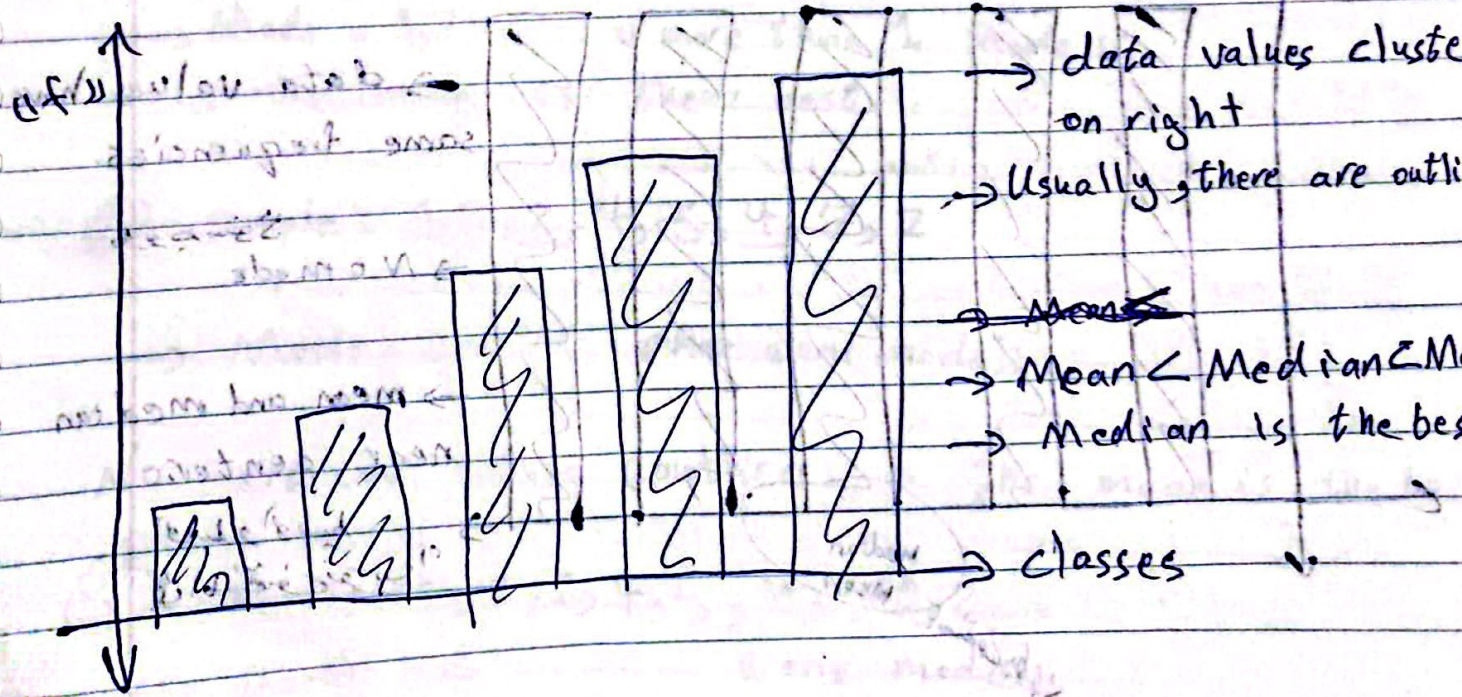 "f"
→ data values cluste
on right
→ Usually, there are outli
→ Mean <
→ Mean < Median < Mo
→ Median is the bes
classes